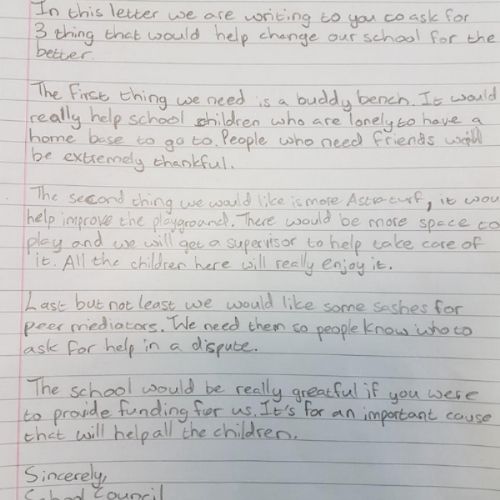 In this letter we are writing to you to ask for
3 thing that would help change our school for the
better.
The first thing we need is a buddy bench. It would
really help school children who are lonely to have a
home base to go to. People who need friends will
be extremely thankful.
The second thing we would like is more Astro turf, it wou
help improve the playground. There would be more space to
play and we will get a supervisor to help take care of
it. All the children here will really enjoy it.
Last but not least we would like some sashes for
peer mediators. We need them so people know who to
ask for help in a dispute.
The school would be really greatful if you were
to provide funding for us. It's for an important cause
that will help all the children.
Sincerely,
School Council